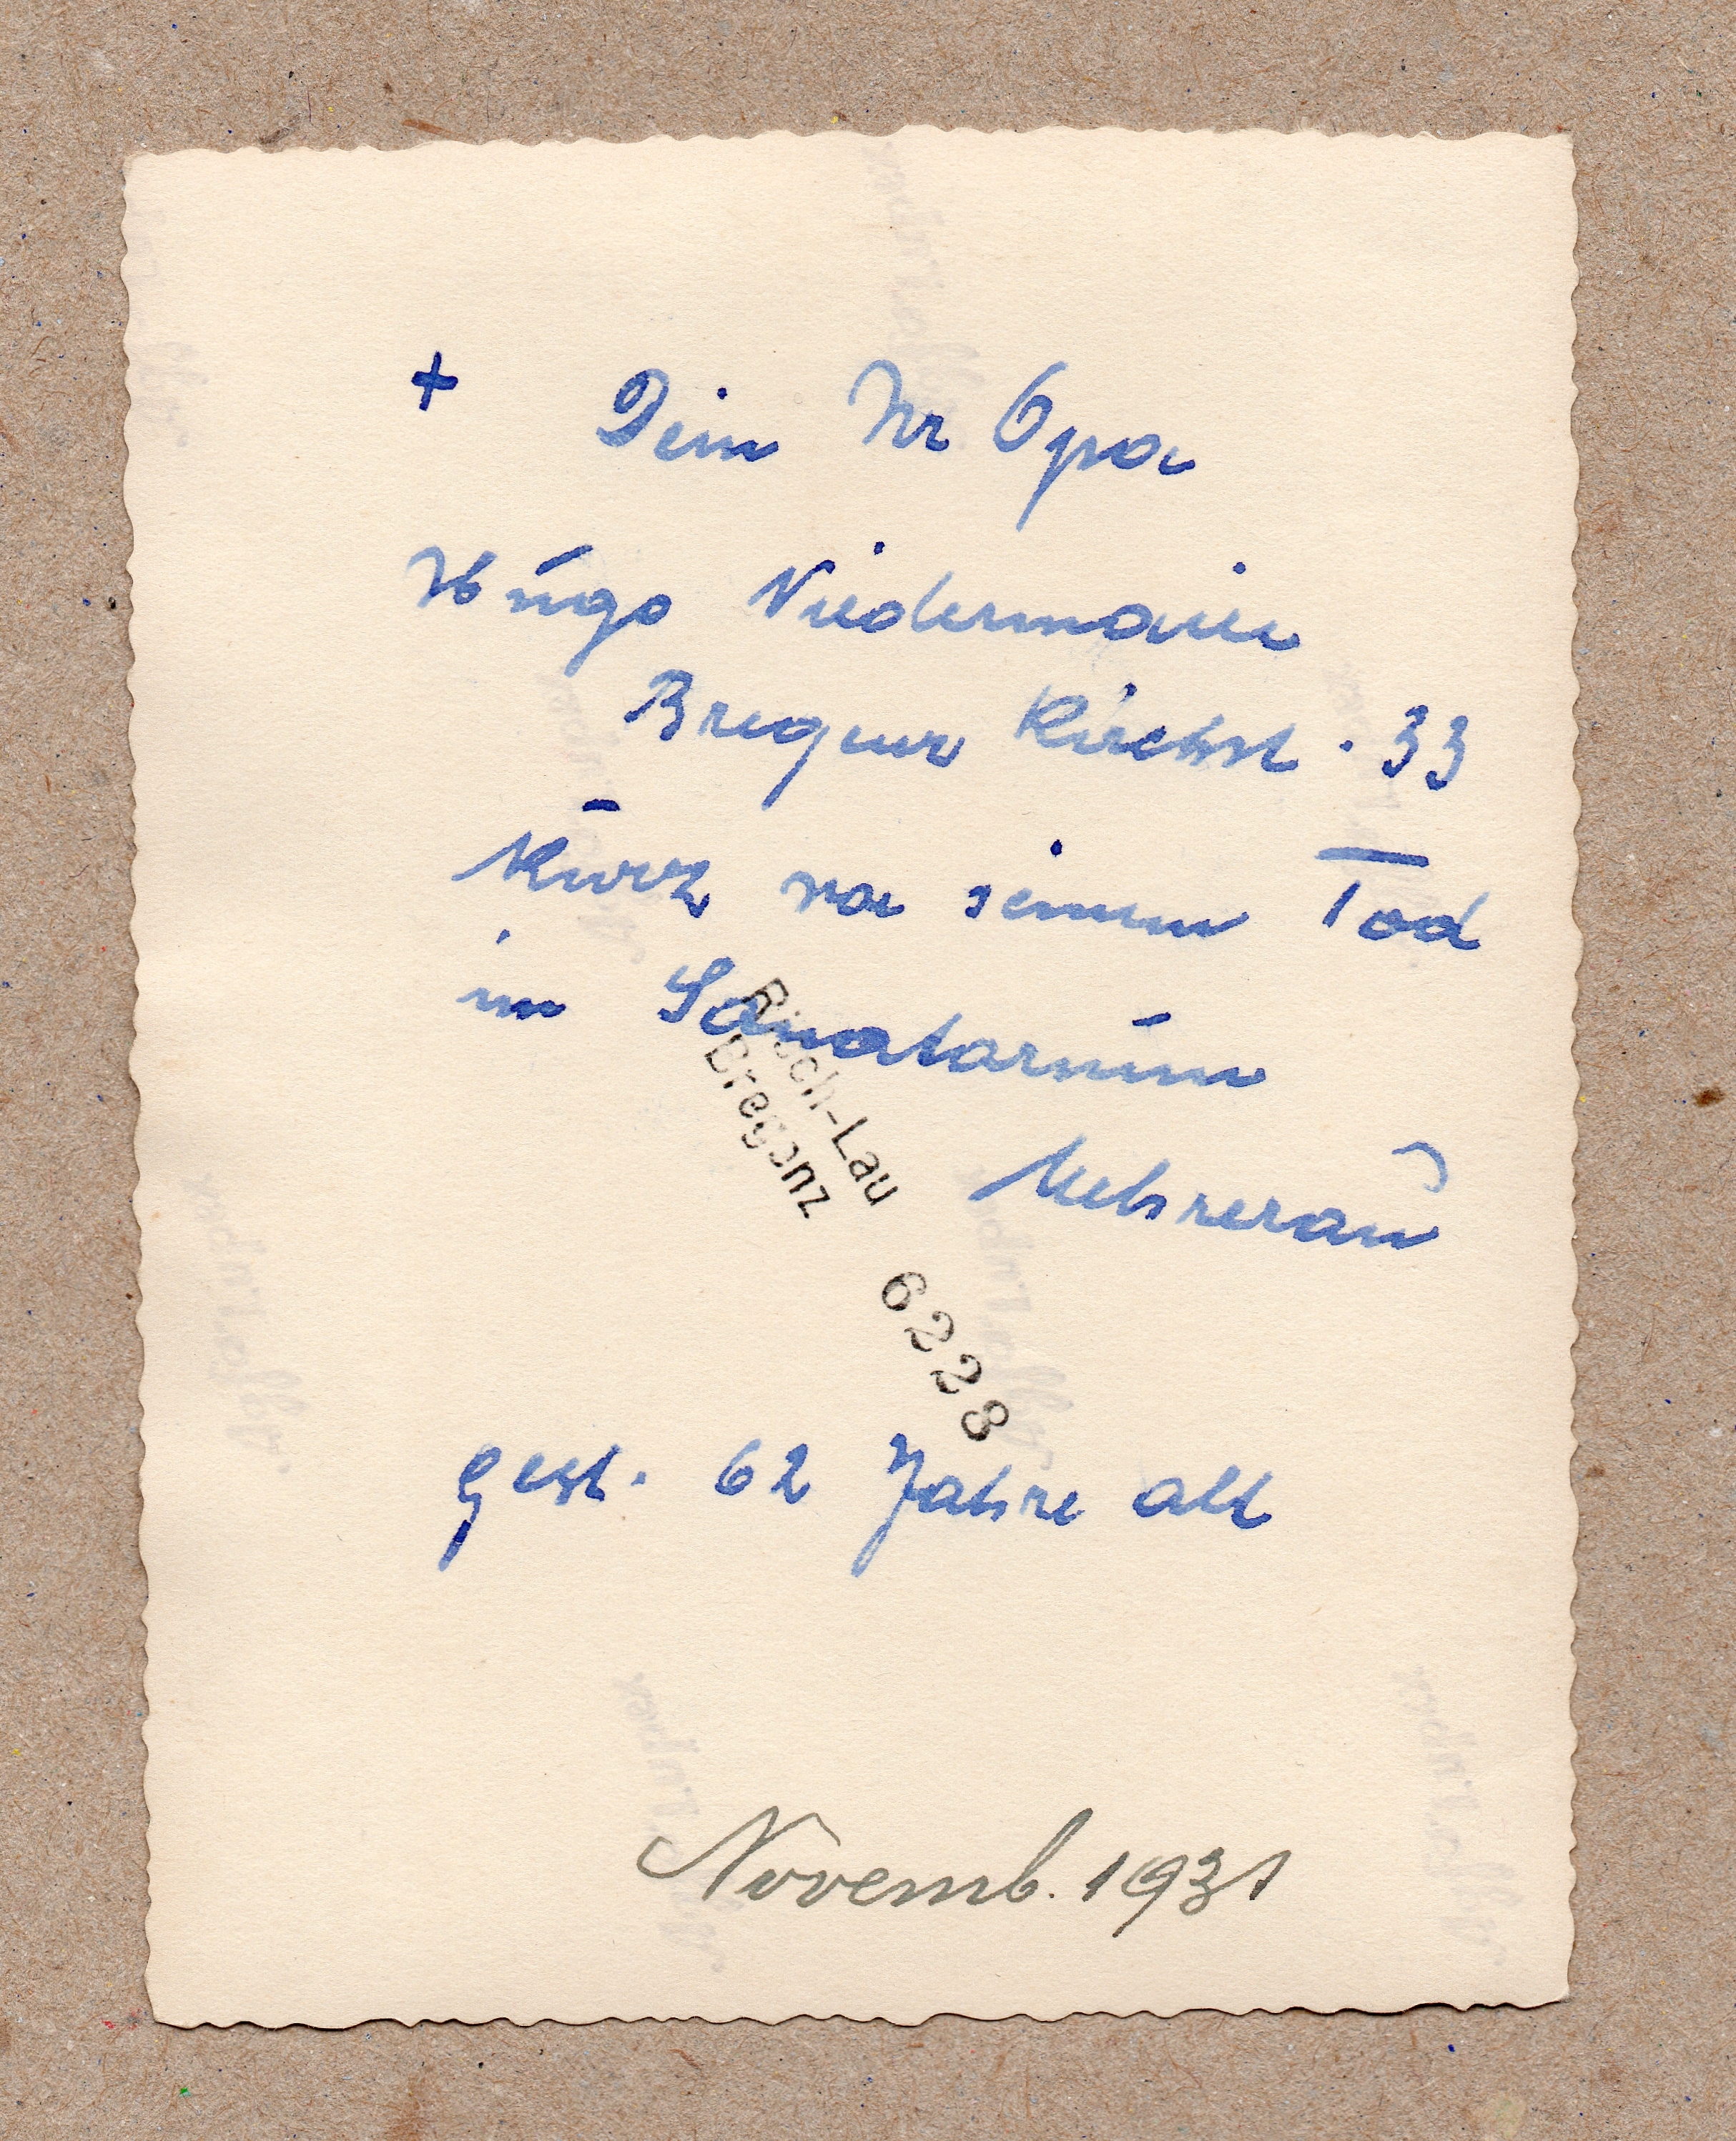 + Dein Ur Opa
Hugo Niedermaier
Bregenz Kirchst. 33
Kurz vor seinem Tod
im Sanatorium
Mehrerau
Risch-Lau
Bregenz
6228
gest. 62 Jahre alt
Novemb. 1931